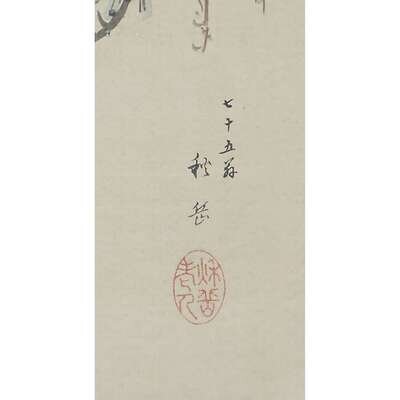 七十五翁
秋岳